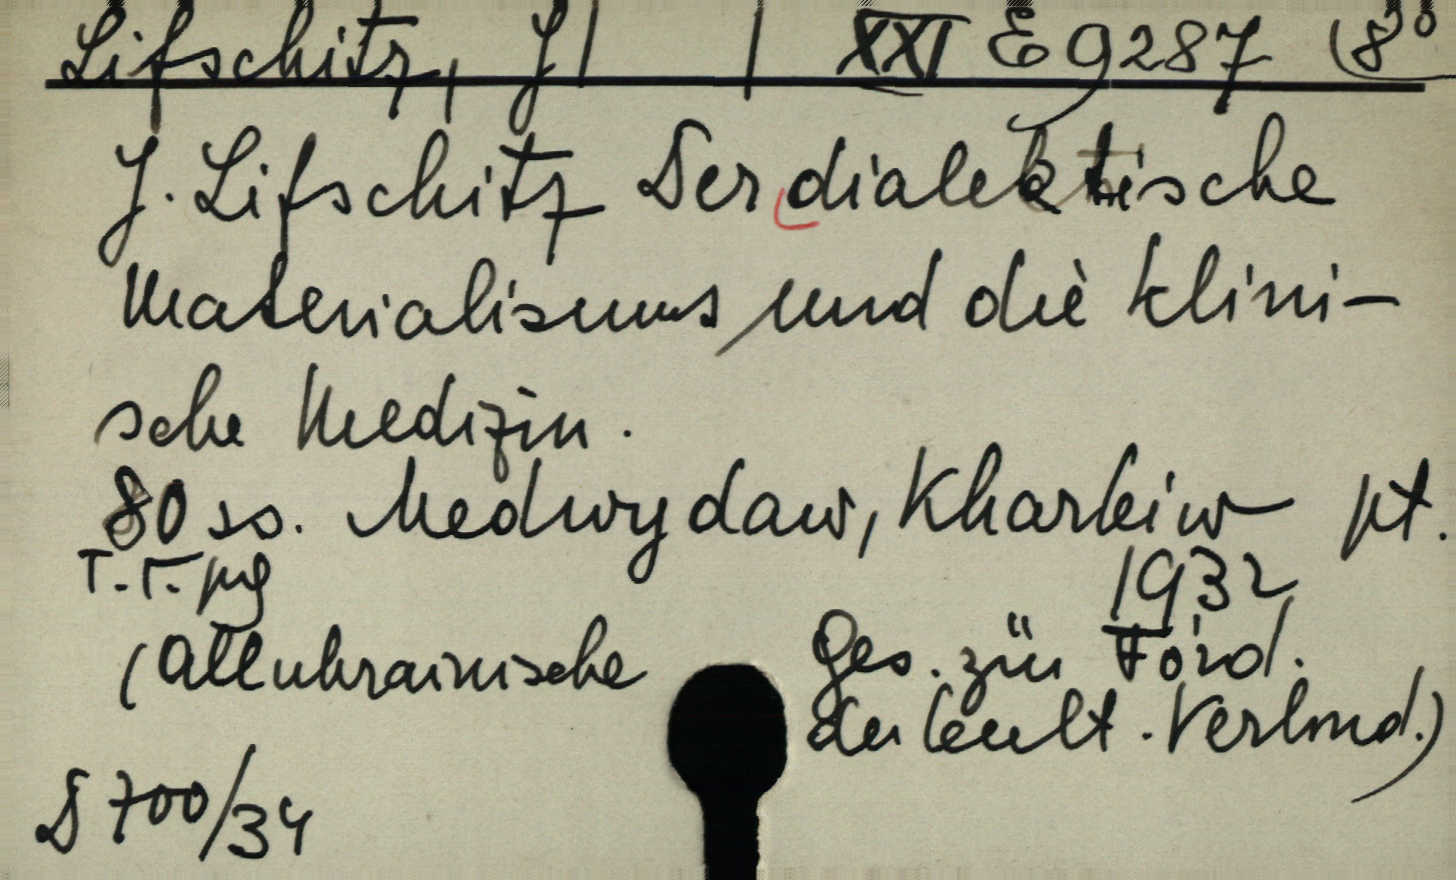 Lifschitz, J XXI E 9287 (8°
J. Lifschitz Der dialektische
Materialismus und die klini-
sche Medizin.
80 ss. Medwydaw, Kharkiw pt.
1932
(Allukrainische Ges. zur Förd.
der kult. Verbind.)
D 700/34